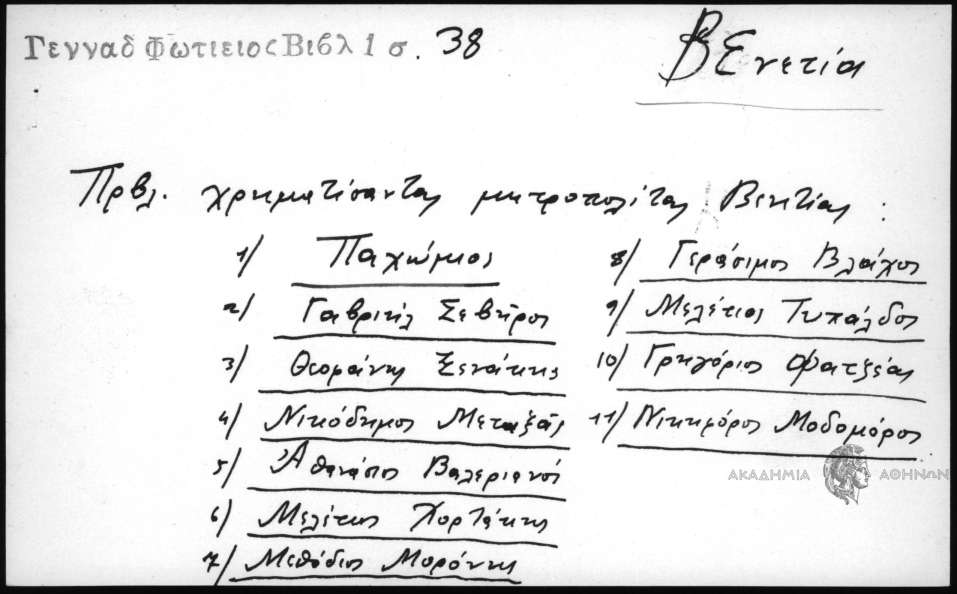 Γενναδ Φωτιειος Βιβλ 1 σ. 38
Βενετία
Πρβλ. χρηματίσαντας μητροπολίτας Βενετίας :
1/ Παχώμιος
2/ Γαβριήλ Σεβῆρος
3/ Θεοφάνης Ξενάκης
4/ Νικόδημος Μεταξᾶς
5/ Ἀθανάσιος Βαλεριανός
6/ Μελέτιος Χορτάκης
7/ Μεθόδιος Μορώνης
8/ Γεράσιμος Βλάχος
9/ Μελέτιος Τυπάλδος
10/ Γρηγόριος Φατζέας
11/ Νικηφόρος
ΑΚΑΔΗΜΙΑ ΑΘΗΝΩΝ